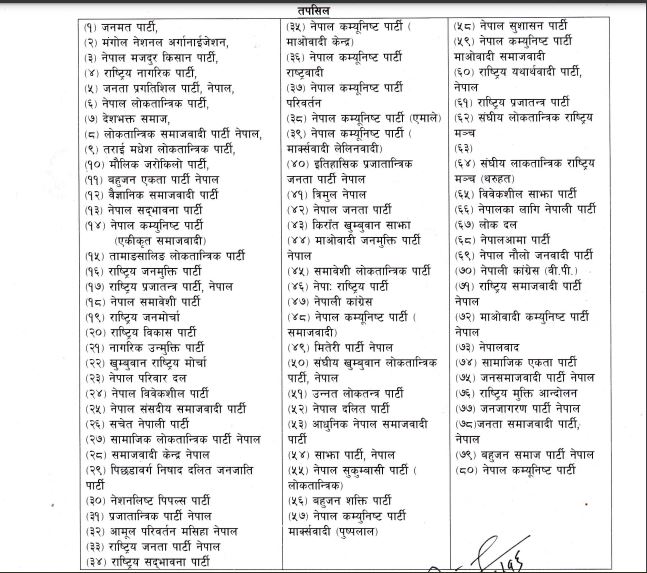 तपसिल
(१) जनमत पार्टी,
(२) मंगोल नेशनल अर्गानाईजेशन,
(३) नेपाल मजदुर किसान पार्टी,
(४) राष्ट्रिय नागरिक पार्टी,
(५) जनता प्रगतिशिल पार्टी, नेपाल,
(६) नेपाल लोकतान्त्रिक पार्टी,
(७) देशभक्त समाज,
(८) लोकतान्त्रिक समाजवादी पार्टी नेपाल,
(९) तराई मधेश लोकतान्त्रिक पार्टी,
(१०) मौलिक जरोकिलो पार्टी,
(११) बहुजन एकता पार्टी नेपाल
(१२) वैज्ञानिक समाजवादी पार्टी
(१३) नेपाल सद्भावना पार्टी
(१४) नेपाल कम्युनिष्ट पार्टी
(एकीकृत समाजवादी)
(१५) तामाङसालिङ लोकतान्त्रिक पार्टी
(१६) राष्ट्रिय जनमुक्ति पार्टी
(१७) राष्ट्रिय प्रजातन्त्र पार्टी, नेपाल
(१८) नेपाल समावेशी पार्टी
(१९) राष्ट्रिय जनमोर्चा
(२०) राष्ट्रिय विकास पार्टी
(२१) नागरिक उन्मुक्ति पार्टी
(२२) खुम्बुवान राष्ट्रिय मोर्चा
(२३) नेपाल परिवार दल
(२४) नेपाल विवेकशील पार्टी
(२५) नेपाल संसदीय समाजवादी पार्टी
(२६) सचेत नेपाली पार्टी
(२७) सामाजिक लोकतान्त्रिक पार्टी नेपाल
(२८) समाजवादी केन्द्र नेपाल
(२९) पिछडावर्ग निषाद दलित जनजाति
पार्टी
(३०) नेशनलिष्ट पिपल्स पार्टी
(३१) प्रजातान्त्रिक पार्टी नेपाल
(३२) आमूल परिवर्तन मसिहा नेपाल
(३३) राष्ट्रिय जनता पार्टी नेपाल
(३४) राष्ट्रिय सद्भावना पार्टी
(३५) नेपाल कम्यूनिष्ट पार्टी (
माओवादी केन्द्र)
(३६) नेपाल कम्यूनिष्ट पार्टी
राष्ट्रवादी
(३७) नेपाल कम्यूनिष्ट पार्टी
परिवर्तन
(३८) नेपाल कम्यूनिष्ट पार्टी (एमाले)
(३९) नेपाल कम्यूनिष्ट पार्टी (
मार्क्सवादी लेलिनवादी)
(४०) इतिहासिक प्रजातान्त्रिक
जनता पार्टी नेपाल
(४१) त्रिमुल नेपाल
(४२) नेपाल जनता पार्टी
(४३) किराँत खुम्बुवान साझा
(४४) माओवादी जनमुक्ति पार्टी
नेपाल
(४५) समावेशी लोकतान्त्रिक पार्टी
(४६) नेपा: राष्ट्रिय पार्टी
(४७) नेपाली कांग्रेस
(४८) नेपाल कम्यूनिष्ट पार्टी (
समाजवादी)
(४९) मितेरी पार्टी नेपाल
(५०) संघीय खुम्बुवान लोकतान्त्रिक
पार्टी, नेपाल
(५१) उन्नत लोकतन्त्र पार्टी
(५२) नेपाल दलित पार्टी
(५३) आधुनिक नेपाल समाजवादी
पार्टी
(५४) साझा पार्टी, नेपाल
(५५) नेपाल सुकुम्बासी पार्टी (
लोकतान्त्रिक)
(५६) बहुजन शक्ति पार्टी
(५७) नेपाल कम्युनिष्ट पार्टी
मार्क्सवादी (पुष्पलाल)
(५८) नेपाल सुशासन पार्टी
(५९) नेपाल कम्युनिष्ट पार्टी
माओवादी समाजवादी
(६०) राष्ट्रिय यथार्थवादी पार्टी,
नेपाल
(६१) राष्ट्रिय प्रजातन्त्र पार्टी
(६२) संघीय लोकतान्त्रिक राष्ट्रिय
मञ्च
(६३)
(६४) संघीय लाकतान्त्रिक राष्ट्रिय
मञ्च (थरुहत)
(६५) विवेकशील साझा पार्टी
(६६) नेपालका लागि नेपाली पार्टी
(६७) लोक दल
(६८) नेपालआमा पार्टी
(६९) नेपाल नौलो जनवादी पार्टी
(७०) नेपाली कांग्रेस (बी.पी.)
(७१) राष्ट्रिय समाजवादी पार्टी
नेपाल
(७२) माओवादी कम्युनिष्ट पार्टी
नेपाल
(७३) नेपालवाद
(७४) सामाजिक एकता पार्टी
(७५) जनसमाजवादी पार्टी नेपाल
(७६) राष्ट्रिय मुक्ति आन्दोलन
(७७) जनजागरण पार्टी नेपाल
(७८)जनता समाजवादी पार्टी,
नेपाल
(७९) बहुजन समाज पार्टी नेपाल
(८०) नेपाल कम्यूनिष्ट पार्टी